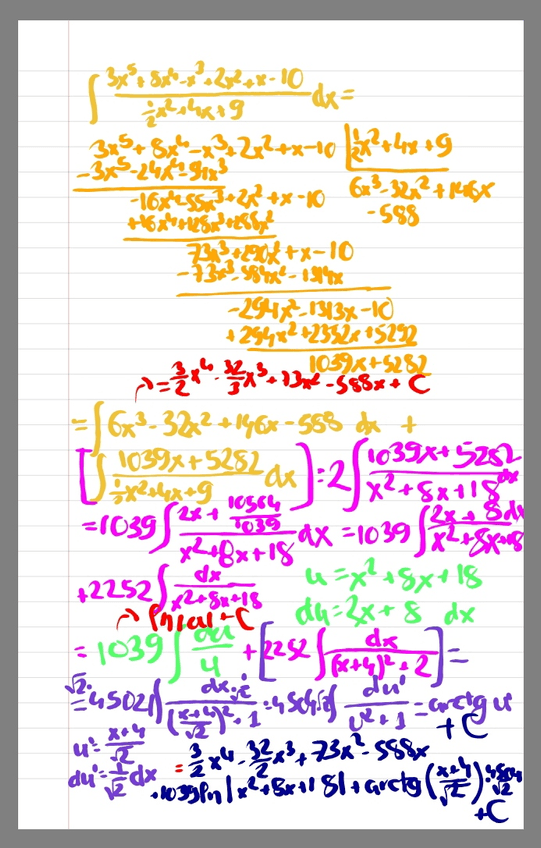 ∫ (3x⁵+8x⁴-x³+2x²+x-10)/(½x²+4x+9) dx =
3x⁵+8x⁴-x³+2x²+x-10 | ½x²+4x+9
-3x⁵-24x⁴-54x³
6x³-32x²+146x
-16x⁴-55x³+2x²+x-10
-588
+16x⁴+128x³+288x²
73x³+290x²+x-10
-73x³-584x²-1314x
-294x²-1313x-10
+294x²+2352x+5292
1039x+5282
= 3/2 x⁴ - 32/3 x³ + 73x² - 588x + C
= ∫ 6x³-32x²+146x-588 dx +
[∫ (1039x+5282)/(½x²+4x+9) dx] = 2∫ (1039x+5282)/(x²+8x+18) dx
= 1039 ∫ (2x + 10564/1039)/(x²+8x+18) dx = 1039 ∫ (2x+8 dx)/(x²+8x+18)
+2252 ∫ dx/(x²+8x+18)
u = x²+8x+18
du = 2x+8 dx
ln|u|+C
= 1039 ∫ du/u + [2252 ∫ dx/((x+4)²+2)] =
du' = 1/√2 dx
u' = (x+4)/√2
= arctg u'
+C
= 3/2 x⁴ - 32/2 x³ + 73x² - 588x
+1039 ln|x²+8x+18| + arctg((x+4)/√2)
+C